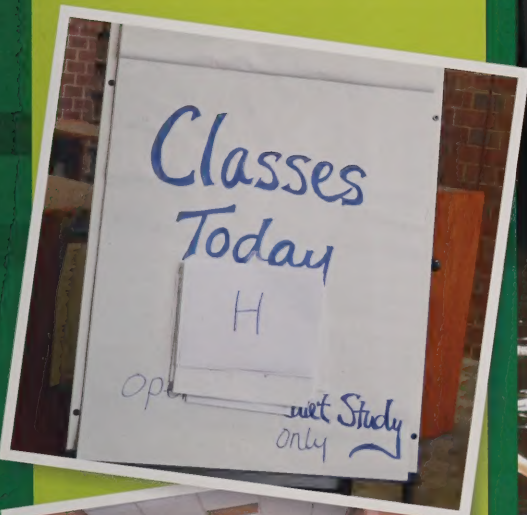 Classes
Today
H
Study
only